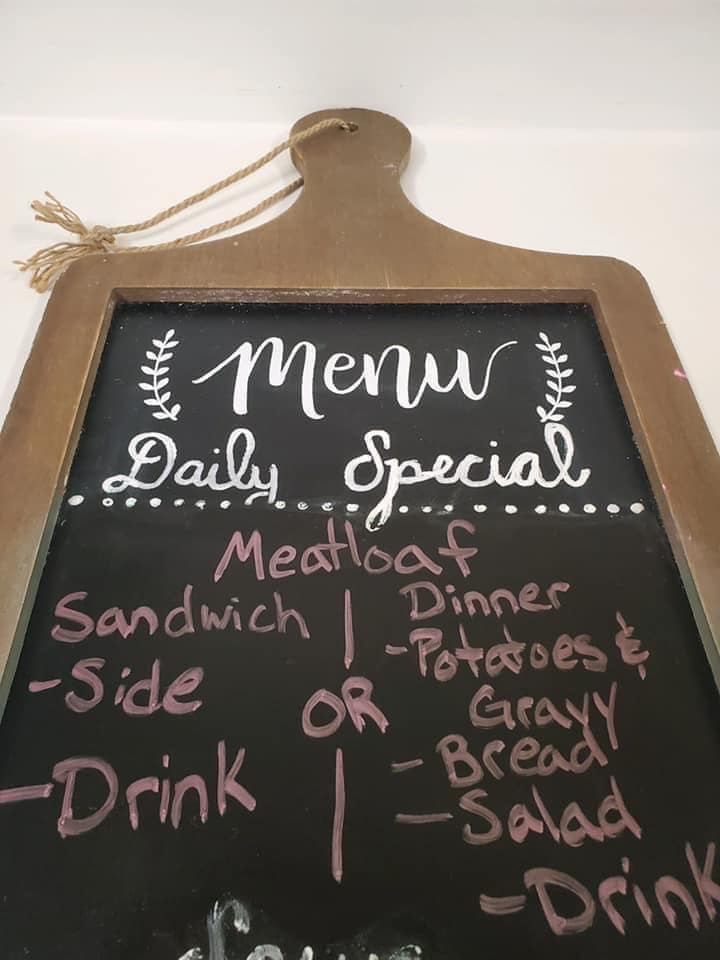 Menu
Daily Special
Meatloaf
Sandwich
-Side
-Drink
OR
Dinner
-Potatoes &
Gravy
-Bread
-Salad
-Drink